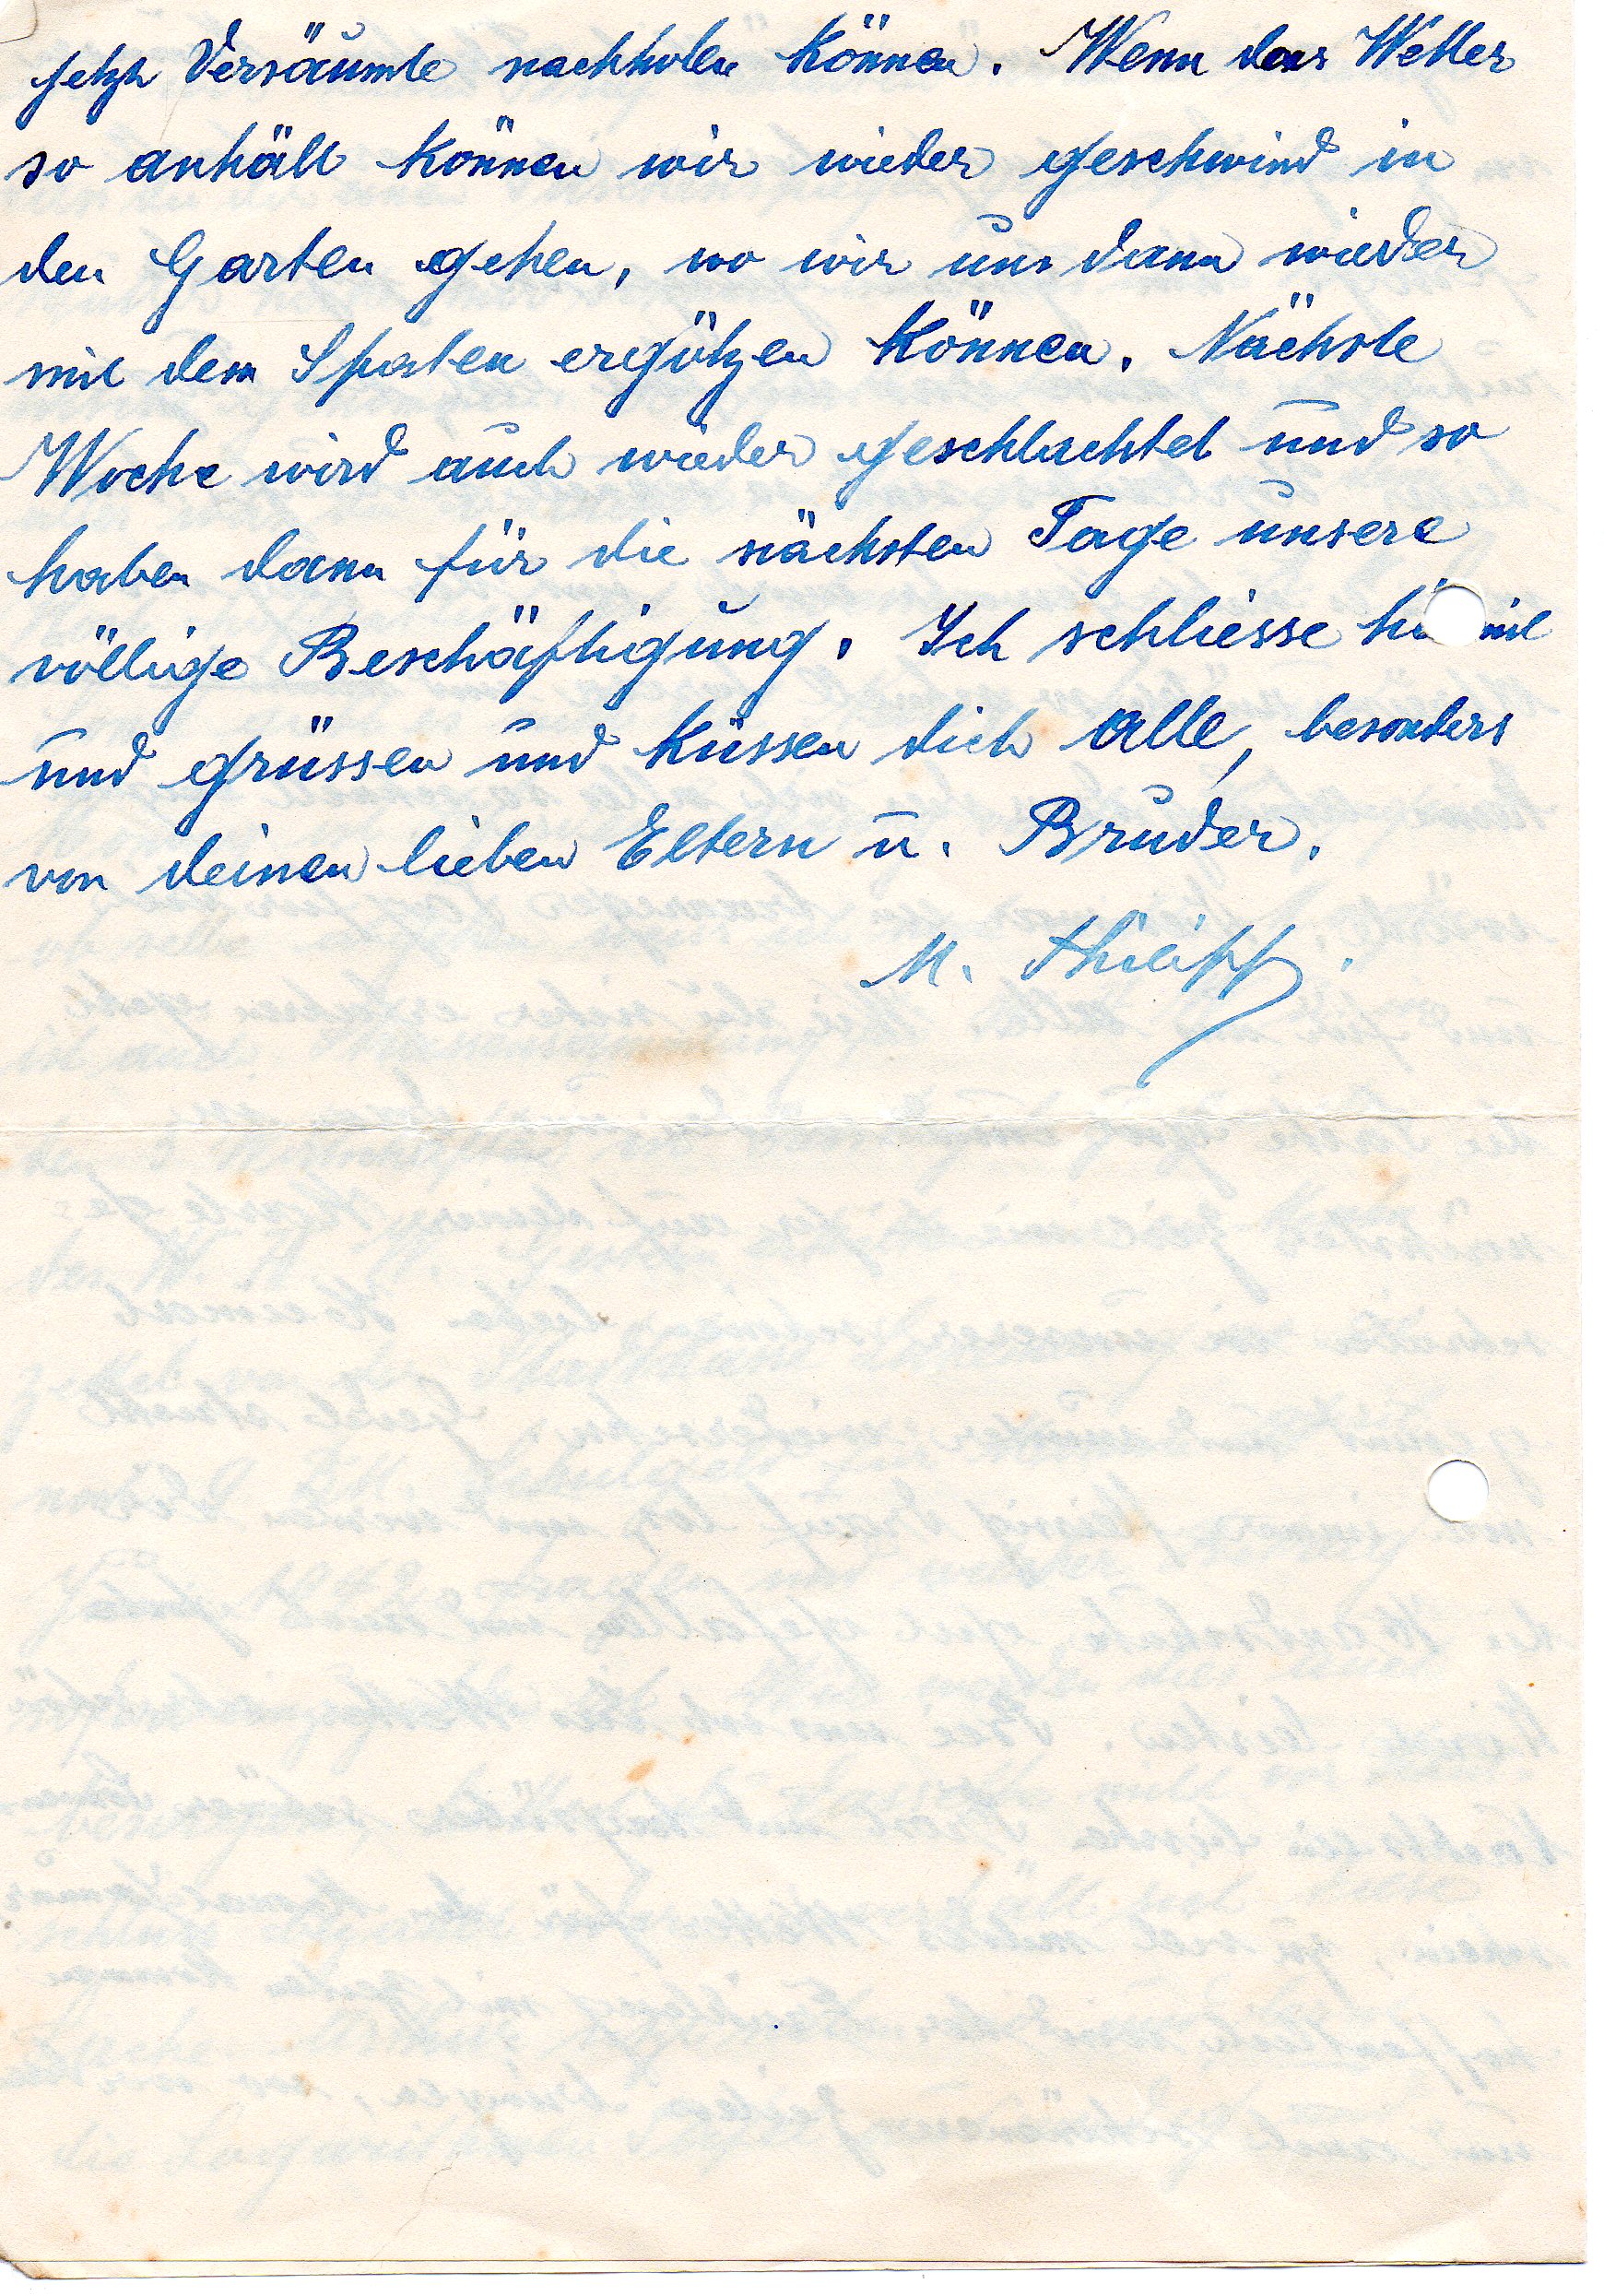 jetzt Versäumte nachholen können. Wenn das Wetter
so anhält können wir wieder geschwind in
den Garten gehen, wo wir uns dann wieder
mit dem Spaten ergötzen können. Nächste
Woche wird auch wieder geschlachtet und so
haben dann für die nächsten Tage unsere
völlige Beschäftigung. Ich schliesse hi mit
und grüssen und küssen dich alle, besonders
von deinen lieben Eltern u. Bruder.
M. Philipp.